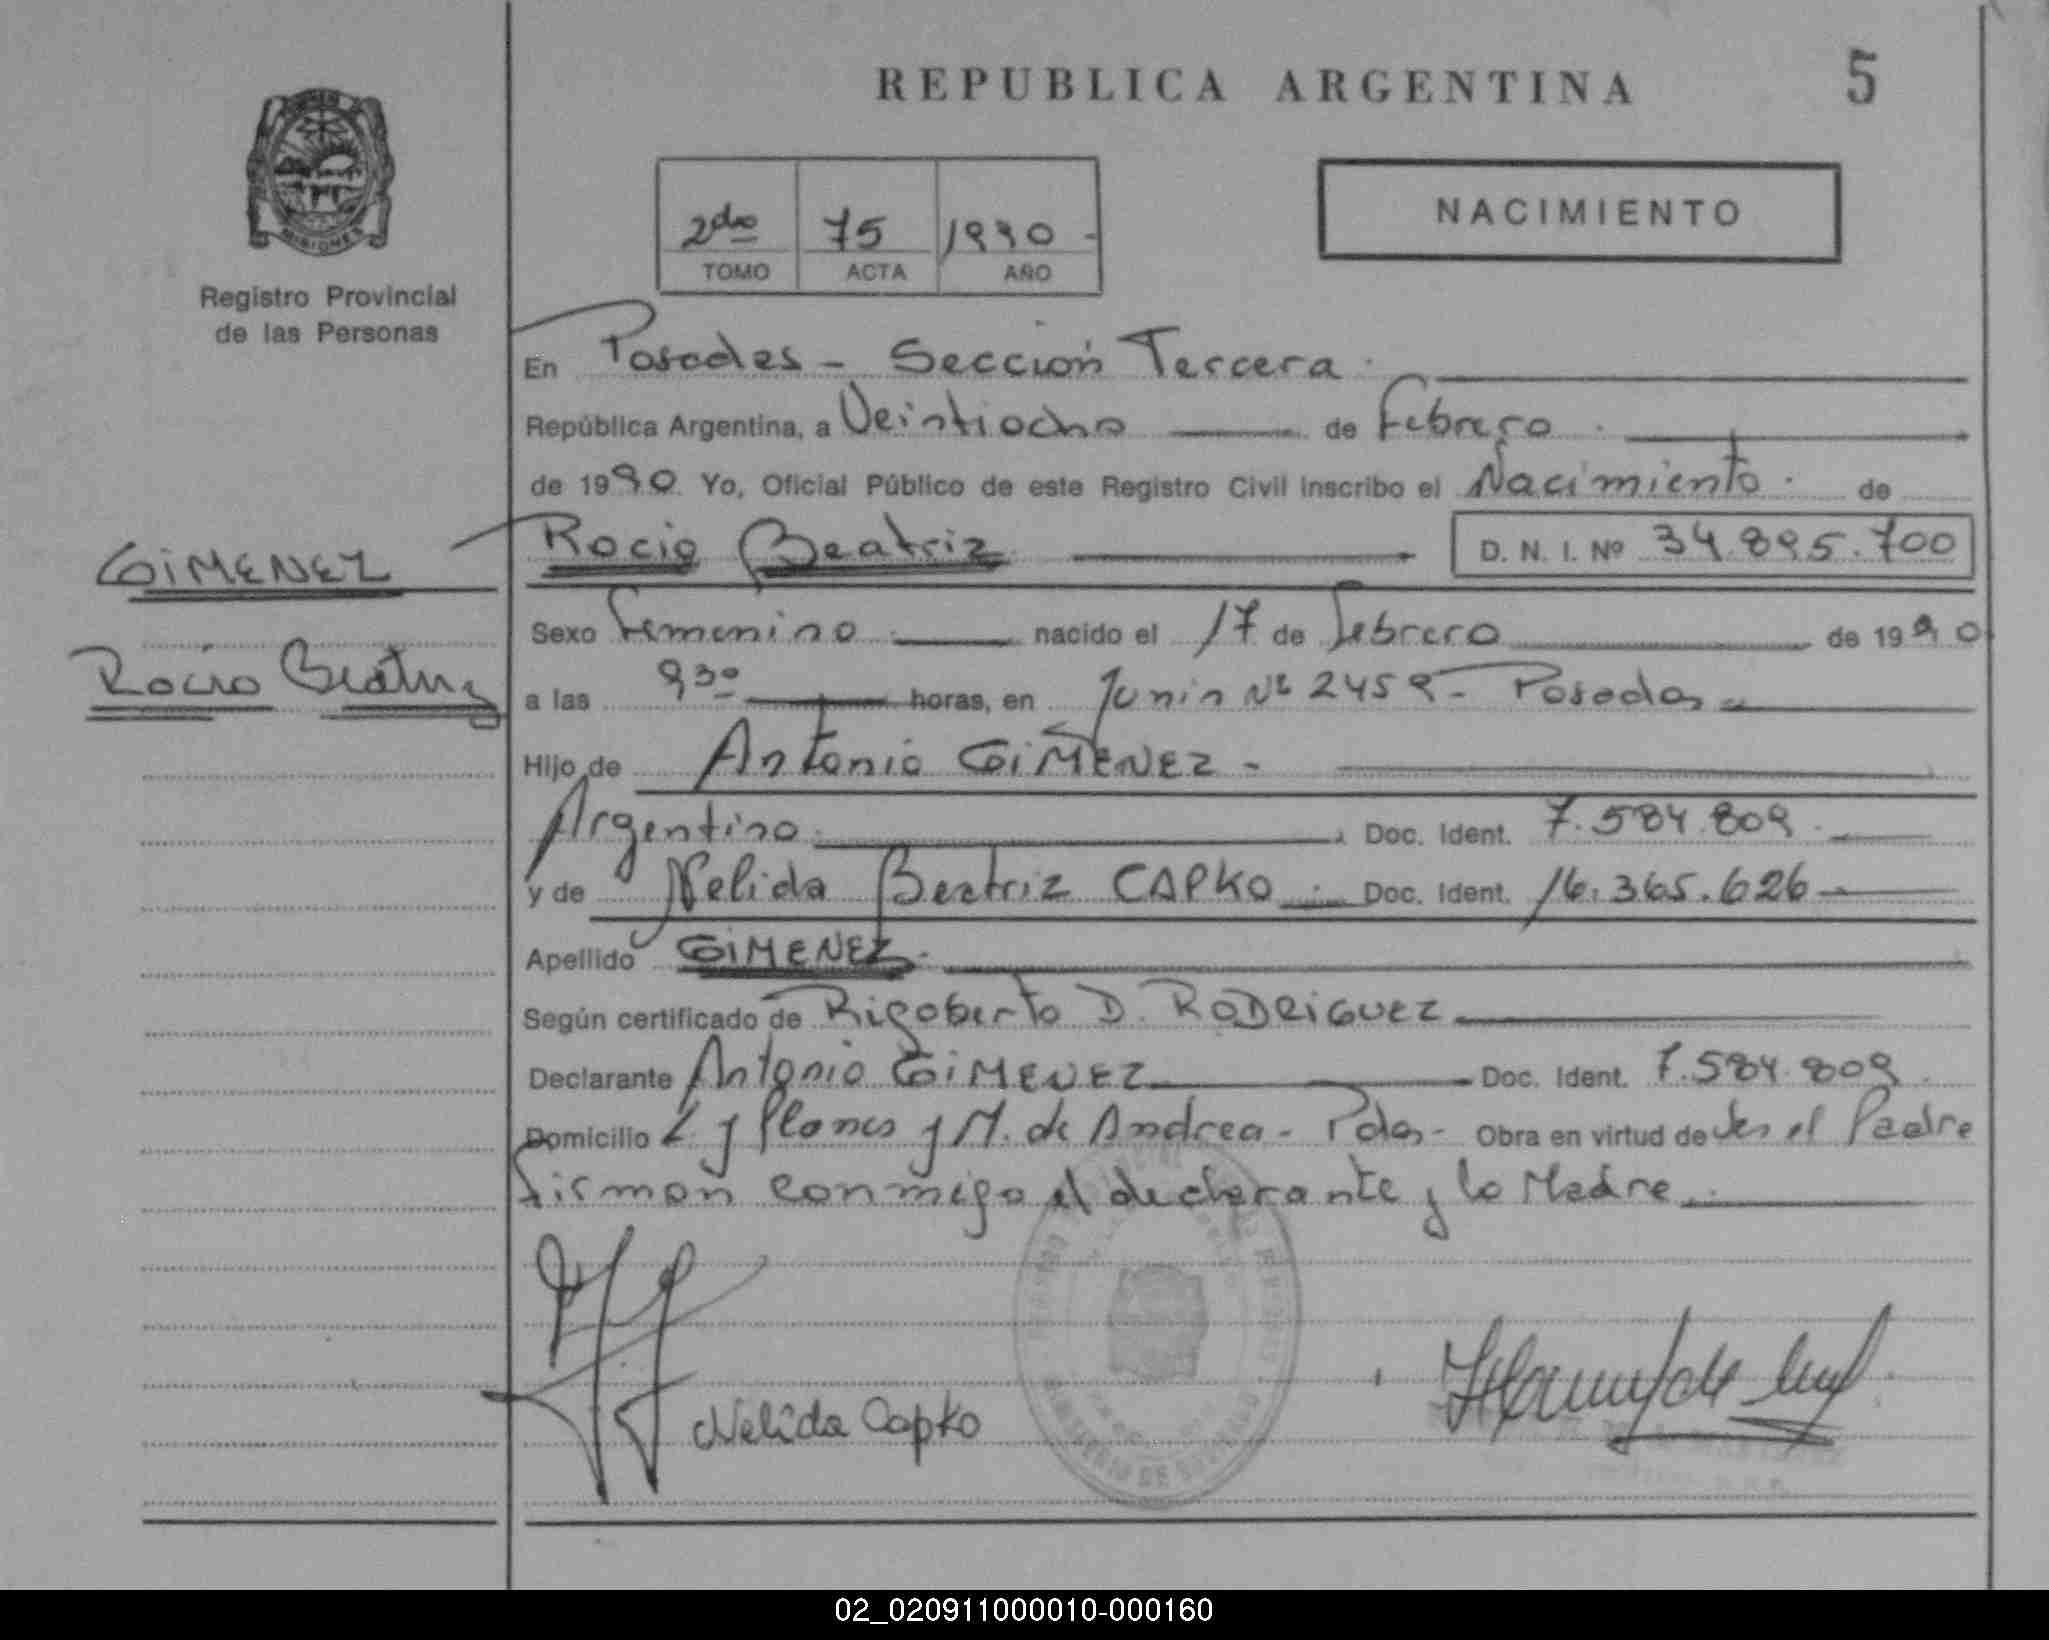 REPUBLICA ARGENTINA 5
2do 75 1990 -
TOMO ACTA AÑO
NACIMIENTO
MISIONES
Registro Provincial
de las Personas
En Posadas - Sección Tercera.
República Argentina, a Veintiocho de Febrero.
de 1990 Yo, Oficial Público de este Registro Civil inscribo el Nacimiento. de
GIMENEZ
Rocio Beatriz
Rocio Beatriz D. N. I. Nº 34.895.700
Sexo Femenino nacido el 17 de Febrero de 1990
a las 930 horas, en Junin Nº 2459 - Posadas
Hijo de Antonio GIMENEZ -
Argentino. Doc. Ident. 7.584.809
y de Nelida Beatriz CAPKO. Doc. Ident. 16.365.626
Apellido GIMENEZ.
Según certificado de Rigoberto D. RODRIGUEZ
Declarante Antonio GIMENEZ Doc. Ident. 7.584.809.
Domicilio L. y Planes y M. de Andrea - Pdas - Obra en virtud de ser el Padre
firman conmigo el declarante y la Madre.
Nelida Capko
02_020911000010-000160